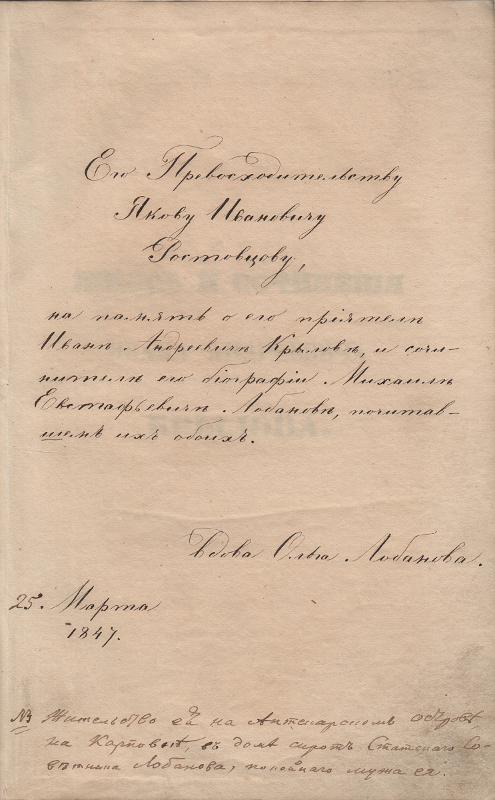 Его Превосходительству
Якову Ивановичу
Ростовцову,
на память о его пріятелѣ
Иванѣ Андреевичѣ Крыловѣ, и сочи-
нителѣ его біографіи Михаилѣ
Евстафьевичѣ Лобановѣ, почитав-
шемъ ихъ обоихъ.
Вдова Ольга Лобанова.
25. Марта
1847.
Жительство ея на Аптекарскомъ островѣ
на Карповкѣ, въ домѣ сиротъ Статскаго Со-
вѣтника Лобанова, покойнаго мужа ея.